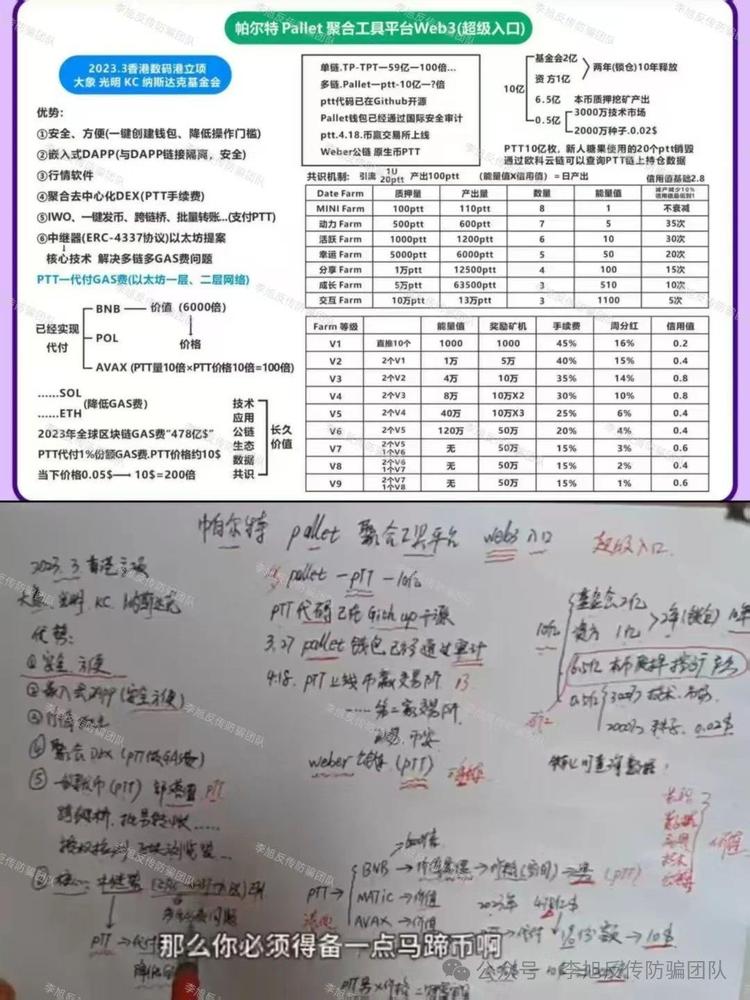 帕尔特 Pallet 聚合工具平台Web3(超级入口)
2023.3香港数码港立项
大象 光明 KC 纳斯达克基金会
优势:
①安全、方便(一键创建钱包、降低操作门槛)
②嵌入式DAPP(与DAPP链接隔离,安全)
③行情软件
④聚合去中心化DEX(PTT手续费)
⑤IWO、一键发币、跨链桥、批量转账...(支付PTT)
⑥中继器(ERC-4337协议)以太坊提案
核心技术 解决多链多GAS费问题
PTT一代付GAS费(以太坊一层、二层网络)
已经实现代付
BNB — 价值(6000倍)
价格
POL
AVAX (PTT量10倍×PTT价格10倍=100倍)
......SOL
......ETH
(降低GAS费)
2023年全球区块链GAS费"478亿$"
PTT代付1%份额GAS费.PTT价格约10$
当下价格0.05$→10$=200倍
技术
应用
公链
生态
数据
共识
长久价值
单链.TP-TPT—59亿一100倍...
多链.Pallet一ptt-10亿一?倍
ptt代码已在Github开源
Pallet钱包已经通过国际安全审计
ptt.4.18.币赢交易所上线
Weber公链 原生币PTT
10亿
基金会2亿
资 方1亿
两年(锁仓)10年释放
6.5亿 本币质押挖矿产出
0.5亿
3000万技术市场
2000万种子.0.02$
PTT10亿枚,新人糖果使用的20个ptt销毁
通过欧科云链可以查询PTT链上持仓数据
共识机制: 引流 1U 20ptt 产出100ptt (能量值X信用值)=日产出 信用值基础2.8
Date Farm 质押量 产出量 数量 能量值 减产减少10% 信用值最低到1
MINI Farm 100ptt 110ptt 8 1 不衰减
动力 Farm 500ptt 600ptt 7 5 35次
活跃 Farm 1000ptt 1200ptt 6 10 30次
幸运 Farm 5000ptt 6000ptt 5 50 20次
分享 Farm 1万ptt 12500ptt 4 100 15次
成长 Farm 5万ptt 63500ptt 3 510 10次
交互 Farm 10万ptt 13万ptt 3 1100 5次
Farm 等级 能量值 奖励矿机 手续费 周分红 信用值
V1 直推10个 1000 1000 45% 16% 0.2
V2 2个V1 1万 5万 40% 15% 0.4
V3 2个V2 4万 10万 35% 14% 0.8
V4 2个V3 8万 10万X2 30% 10% 0.8
V5 2个V4 40万 10万X3 25% 6% 0.4
V6 2个V5 120万 50万 20% 4% 0.4
V7 2个V5 1个V6 无 50万 15% 3% 0.6
V8 2个V6 1个V7 无 50万 15% 2% 0.4
V9 2个V7 1个V8 无 50万 15% 1% 0.6
帕尔特 pallet 聚合工具平台 web3入口 超级入口
2023.3 香港立项
大象 光明 KC 纳斯达克
优势:
①安全 方便
②嵌入式DAPP(安全方便)
④聚合DEX (PTT低GAS费)
跨链桥、批量转账......
pallet — PTT — 10亿
PTT代码已在Github开源
3.27 pallet 钱包已经通过审计
4.18. PTT上线币赢交易所 13
......第二家交易所
weber 公链 (PTT)
10亿
基金会2亿
资方 1亿
2年(锁仓) 10年
6.5亿 本币质押挖矿产出
0.5亿
2000万 种子. 0.02$
PTT →
BNB →
MATIC → 价值
AVAX → 价值
10$
那么你必须得备一点马蹄币啊
公众号 · 李旭反传防骗团队
李旭反传防骗团队